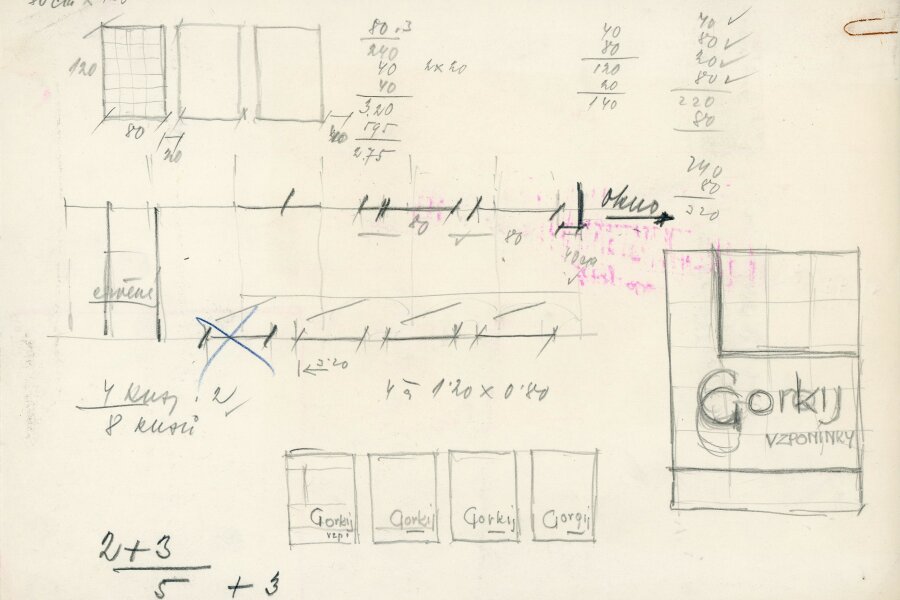 120
80
20
80 · 3
240
40 2 x 20
40
3,20
595
2,75
40
80
120
20
140
40 ✓
80 ✓
20 ✓
80 ✓
220
80
240
80
320
okno
80
80
40
3·20
4 kusy · 2 ✓
8 kusů
4 à 1·20 x 0·80
Gorkij
VZPOMÍNKY
Gorkij
vzp.
Gorkij
Gorkij
Gorgij
2 + 3
5 + 3